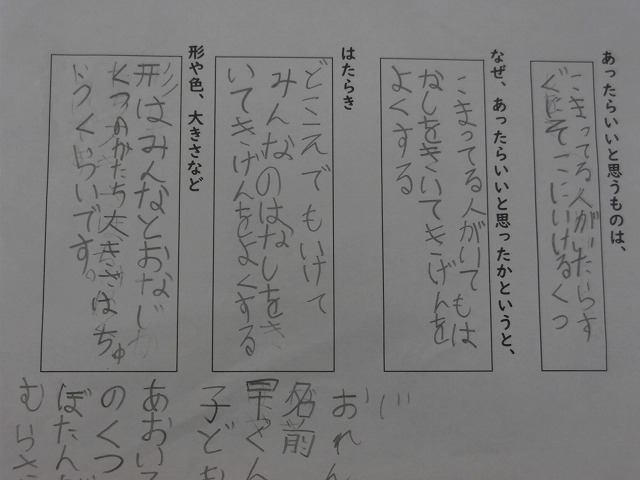 あったらいいと思うものは、
こまってる人がいたらす
ぐにそこにいけるくつ
なぜ、あったらいいと思ったかというと、
こまってる人がいてもは
なしをきいてきげんを
よくする
はたらき
どこえでもいけて
みんなのはなしをき
いてきげんをよくする
形や色、大きさなど
形はみんなとおなじ
くつのかたち大きさはちゅ
うくらいです。
おれん
名前
子ども
あおい
のくつ
ぼたんが
むらさ